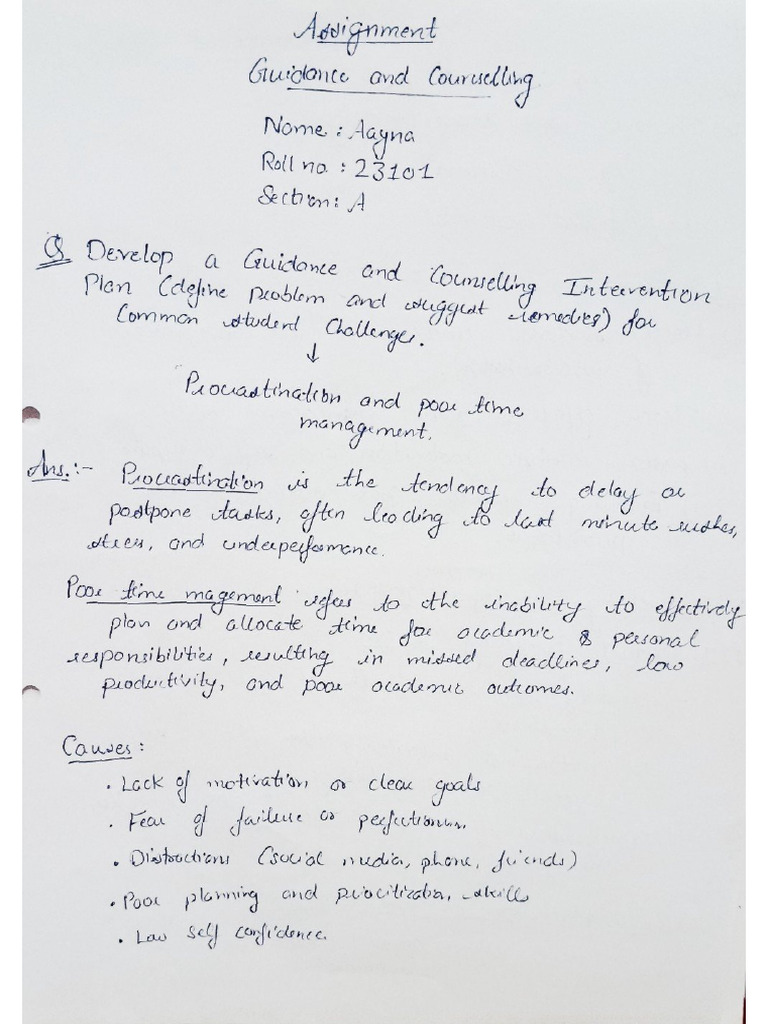 Assignment
Guidance and Counselling
Name : Aayna
Roll no : 23101
Section: A
Q Develop a Guidance and Counselling Intervention
Plan (define problem and suggest remedies) for
Common student Challenges.
↓
Procrastination and poor time
management.
Ans.:- Procrastination is the tendency to delay or
postpone tasks, often leading to last minute rushes,
stress, and underperformance.
Poor time magement refers to the inability to effectively
plan and allocate time for academic & personal
responsibilities, resulting in missed deadlines, low
productivity, and poor academic outcomes.
Causes :
• Lack of motivation or clear goals
• Fear of failure or perfectionism.
• Distractions (social media, phone, friends)
• Poor planning and prioritization skills
• Low self confidence.